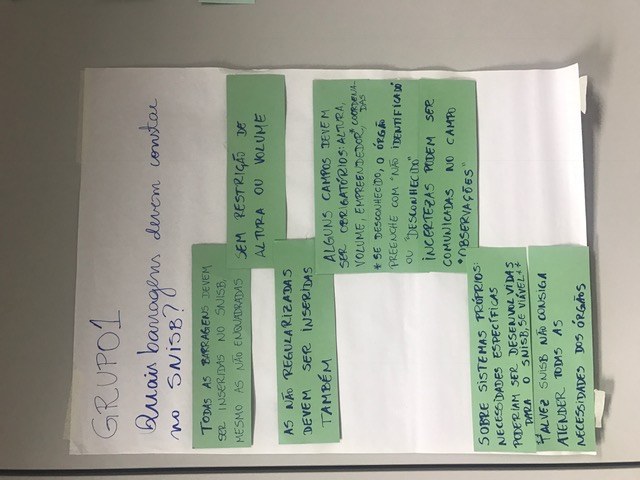 GRUPO1
Quais barragens devem constar
no SNISB?
TODAS AS BARRAGENS DEVEM
SER INSERIDAS NO SNISB,
MESMO AS NÃO ENQUADRADAS
SEM RESTRIÇÃO DE
ALTURA OU VOLUME
AS NÃO REGULARIZADAS
DEVEM SER INSERIDAS
TAMBÉM
ALGUNS CAMPOS DEVEM
SER OBRIGATÓRIOS: ALTURA,
VOLUME, EMPREENDEDOR, COORDENA
DAS
+ SE DESCONHECIDO, O ÓRGÃO
PREENCHE COM "NÃO IDENTIFICADO"
OU "DESCONHECIDO"
INCERTEZAS PODEM SER
COMUNICADAS NO CAMPO
"OBSERVAÇÕES"
SOBRE SISTEMAS PRÓPRIOS:
NECESSIDADES ESPECÍFICAS
PODERIAM SER DESENVOLVIDAS
PARA O SNISB, SE VIÁVEL.
TALVEZ SNISB NÃO CONSIGA
ATENDER TODAS AS
NECESSIDADES DOS ÓRGÃOS